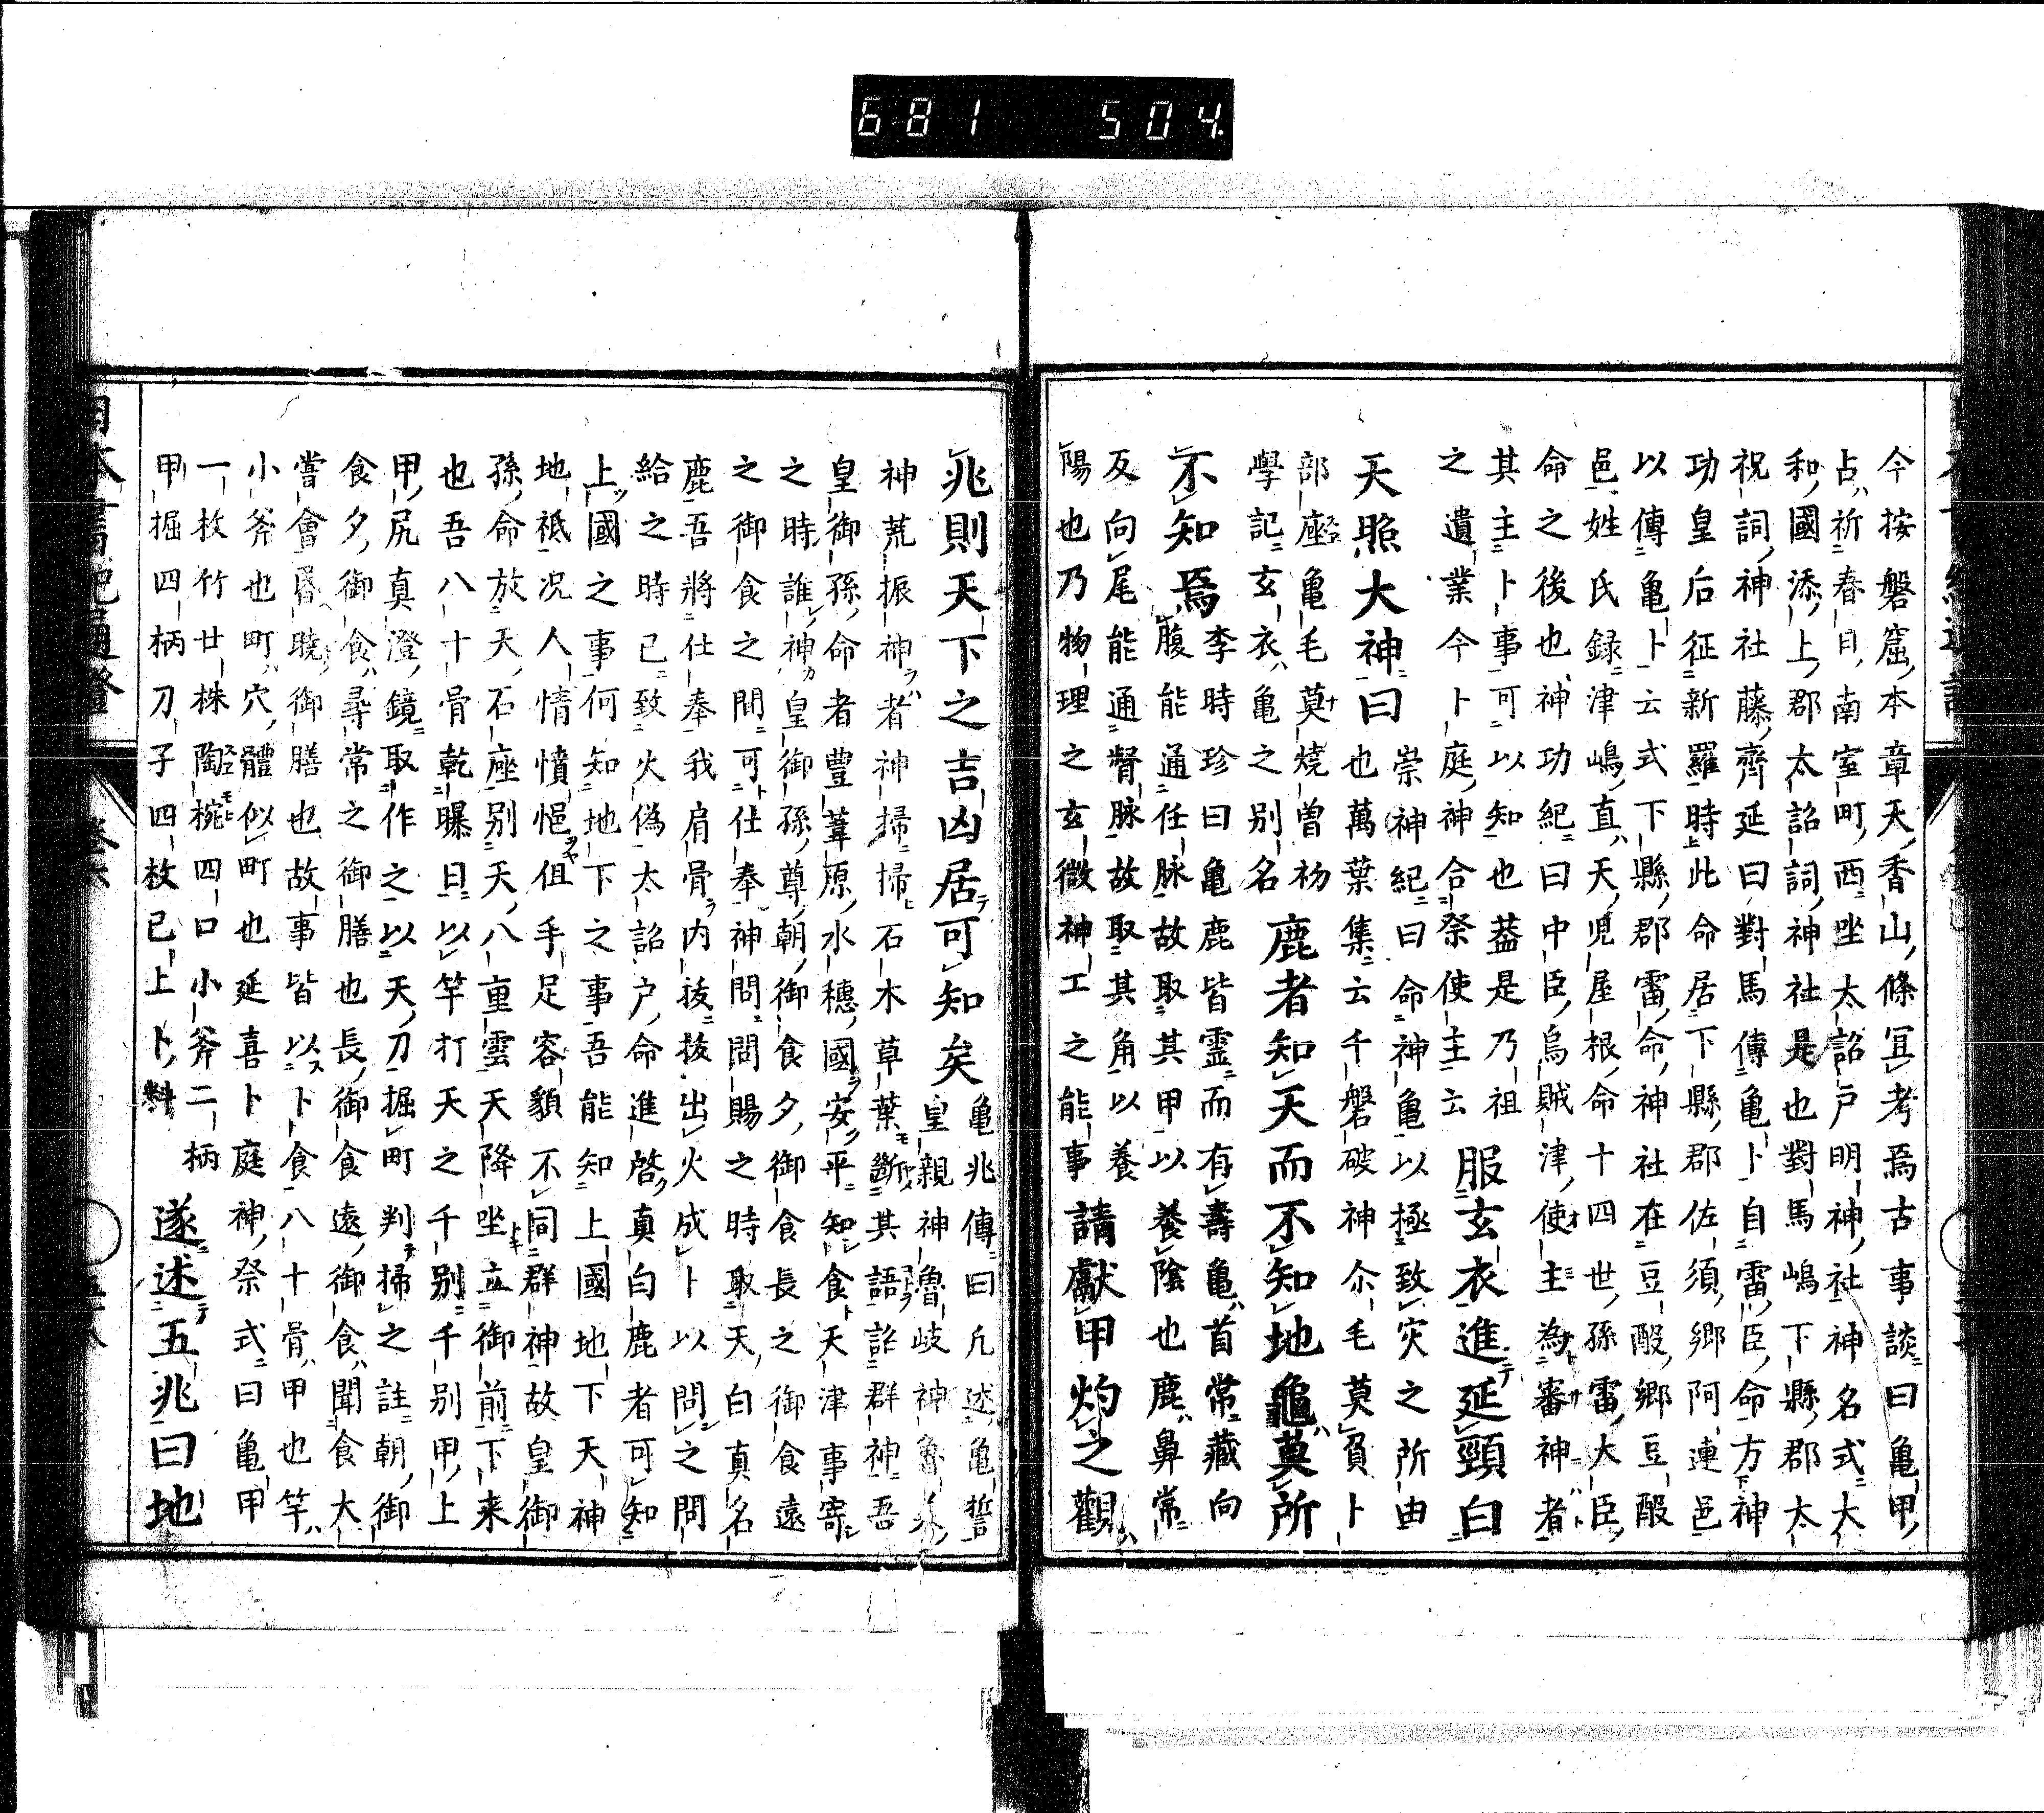 681 504
今按磐窟本章天香山條冝考焉古事談曰亀甲
占祈春日南室町西坐太詔戸明神社神名式大
和國添上郡太詔詞神社是也對馬嶋下縣郡太
祝詞神社藤齊延曰對馬傳亀卜自雷臣命方神
功皇后征新羅時此命居下縣郡佐須郷阿連邑
以傳亀卜云式下縣郡雷命神社在豆酘郷豆酘
邑姓氏録津嶋直天児屋根命十四世孫雷大臣
命之後也神功紀曰中臣烏賊津使主為審神者
其主卜事可以知也葢是乃祖
之遺業今卜庭神合祭使主云 服玄衣進延頸白
天照大神曰 崇神紀曰命神亀以極致灾之所由
也萬葉集云千磐破神尒毛莫負卜
部座亀毛莫燒曽 初
學記玄衣亀之别名 鹿者知天而不知地龜莫所
不知焉 李時珍曰亀鹿皆霊而有壽亀首常藏向
腹能通任脉故取其甲以養陰也鹿鼻常
反向尾能通督脉故取其角以養
陽也乃物理之玄微神工之能事 請獻甲灼之觀
兆則天下之吉凶居可知矣 亀兆傳曰凢述亀誓
皇親神魯岐神魯美
神荒振神者神掃掃石木草葉斷其語詔群神吾
皇御孫命者豊葦原水穂國安平知食天津事寄
之時誰神皇御孫尊朝御食夕御食長之御食遠
之御食之間可仕奉神問問賜之時取天白真名
鹿吾將仕奉我肩骨内抜抜出火成卜以問之問
給之時已致火偽太詔戸命進啓真白鹿者可知
上國之事何知地下之事吾能知上國地下天神
地祇况人情憤悒但手足容貌不同群神故皇御
孫命放天石座别天八重雲天降坐立御前下来
也吾八十骨乾曝日以竿打天之千别千别甲上
甲尻真澄鏡取作之以天刀掘町判掃之註朝御
食夕御食尋常之御膳也長御食遠御食聞食大
嘗會昏曉御膳也故事皆以卜食八十骨甲也竿
小斧也町穴體似町也延喜卜庭神祭式曰亀甲
一枚竹廿株陶椀四口小斧二柄
甲掘四柄刀子四枚已上卜料 遂述五兆曰地